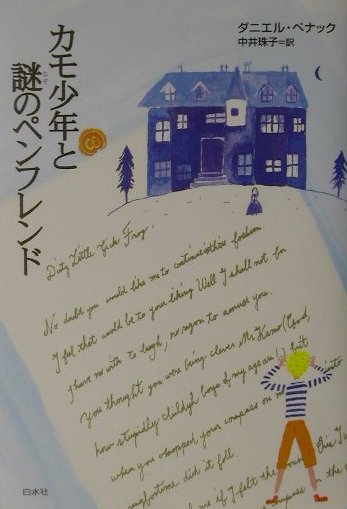 ダニエル・ペナック
中井珠子=訳
カモ少年と
謎のペンフレンド
なぞ
Dirty Little Sick Frog,
No doubt you would like me to continue in this fashion
I feel that would be to your liking Well I shall not for
I have no wish to laugh, no reason to amuse you.
You thought you were being clever Mr Kamo (Good,
how stupidly childish boys of my age are!) but
when you chopped your compass on
misfortune did it fall
me if I felt the
compass in the
白水社